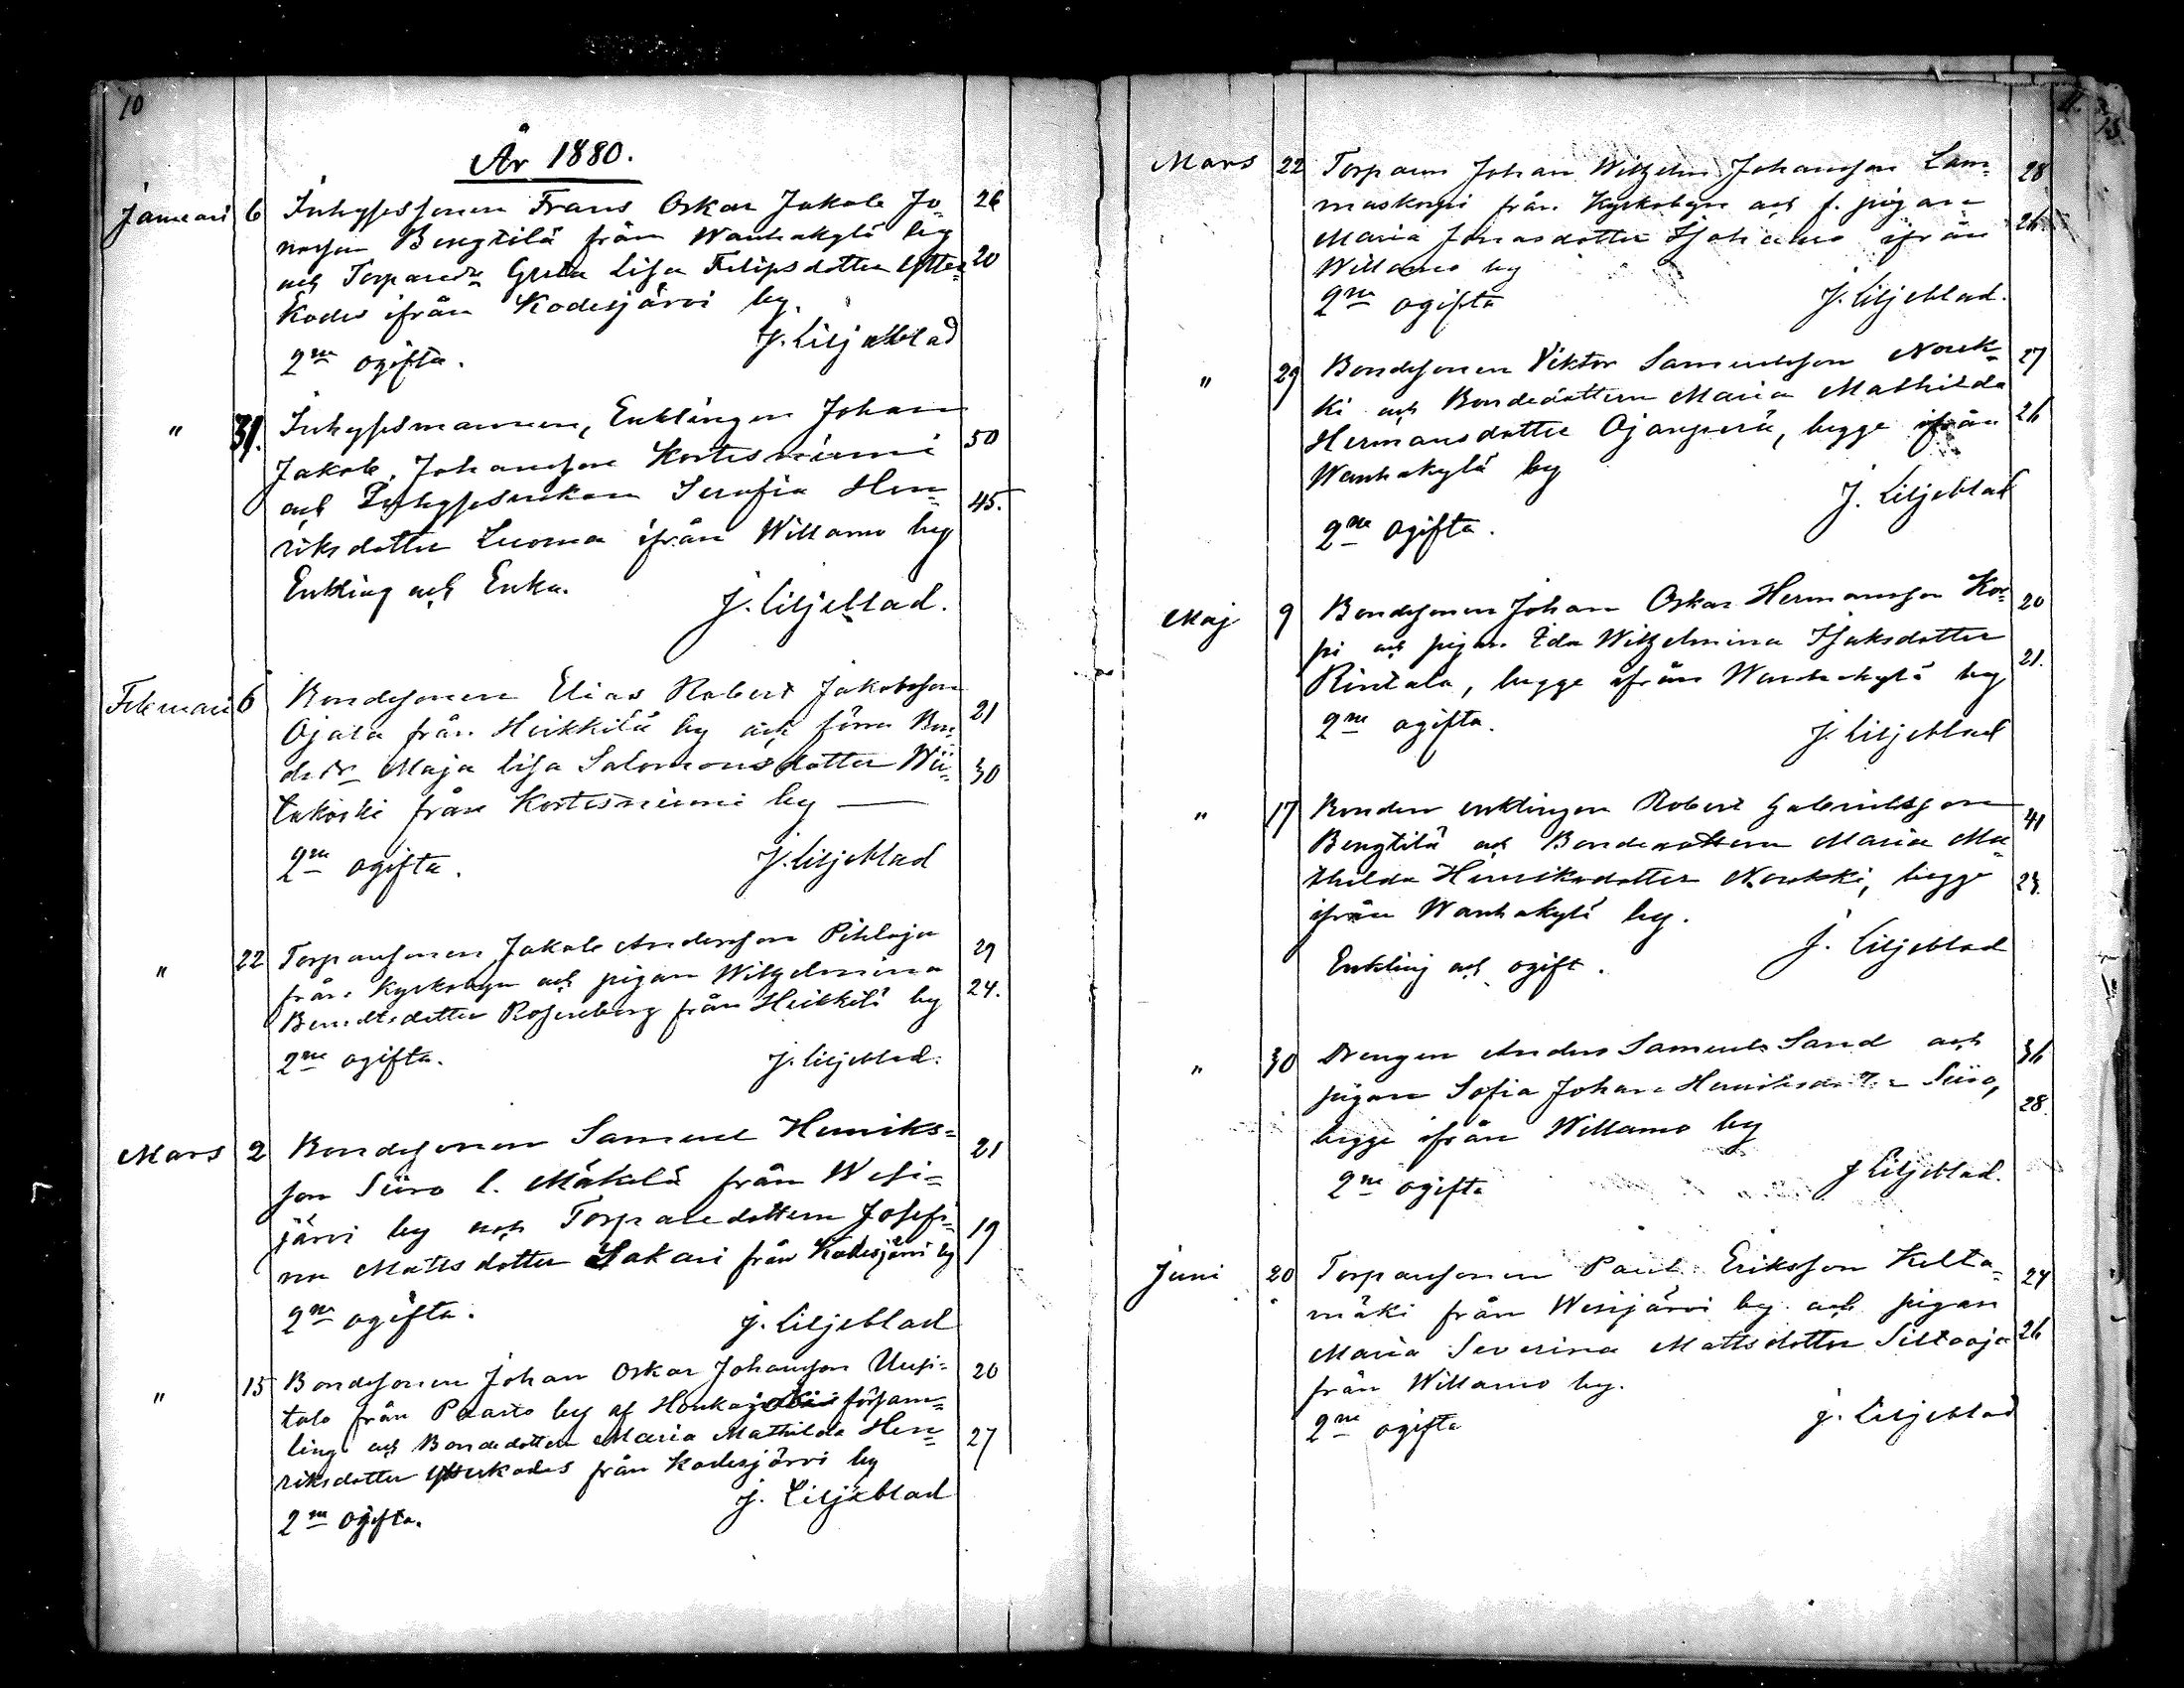 10
År 1880.
Januari 6 Inhyssessonen Frans Oskar Jakob Jo= 26
nasson Bengtilä från Wanhakylä by
och Torparedr Greta Lisa Filipsdotter Ytter= 20
Kodes ifrån Kodesjärvi by.
J. Liljeblad
2ne ogifta.
" 31. Inhysesmannen, Enklingen Johan
Jakob Johansson Kortesniemi 50
och Inhysesenkan Serafia Hen= 45.
riksdotter Luoma ifrån Willamo by
Enkling och Enka.
J. Liljeblad.
Februari 6 Bondesonen Elias Robert Jakobsson
Ojala från Heikkilä by och förra Bon= 21
dedr Maja Lisa Salomonsdotter Wii= 30
takoski från Kortesniemi by
2ne ogifta.
J. Liljeblad
" 22 Torparsonen Jakob Andersson Pihlaja 29
från Kyrkobyn och pigan Wilhelmina
Bendtsdotter Rosenberg från Heikkilä by 24.
2ne ogifta.
J. Liljeblad.
Mars 2 Bondesonen Samuel Henriks= 21
son Siiro l. Mäkelä från Wesi=
järvi by och Torparedottern Josefi= 19
na Mattsdotter Sakari från Kodesjärvi by
2ne ogifta.
J. Liljeblad
" 15 Bondesonen Johan Oskar Johansson Uusi= 20
talo från Paasto by af Honkajoki försam=
ling och Bondedottern Maria Mathilda Hen= 27
riksdotter Ytterkodes från Kodesjärvi by
J. Liljeblad
2ne ogifta.
11.
Mars 22 Torparen Johan Wilhelm Johansson Lam= 28
maskorpi från Kyrkobyn och f. pigan
Maria Jonasdotter Isohamo ifrån 26
Willamo by
2ne ogifta
J. Liljeblad.
" 29 Bondesonen Viktor Samuelsson Nouk= 27
ki och Bondedottern Maria Mathilda
Hermansdotter Ojanperä, begge ifrån 26
Wanhakylä by
J. Liljeblad
2ne ogifta.
Maj 9 Bondesonen Johan Oskar Hermansson Kor= 20
pi och pigan Ida Wilhelmina Isaksdotter
Rintala, begge ifrån Wanhakylä by 21.
2ne ogifta.
J. Liljeblad
" 17 Bonden enklingen Robert Gabrielsson
Bengtilä och Bondedottern Maria Ma= 41
thilda Henriksdotter Noukki, begge 23.
ifrån Wanhakylä by.
J. Liljeblad
Enkling och ogift.
" 30 Drengen Anders Samuels Sand och 36
pigan Sofia Johana Henriksdotter Siiro,
begge ifrån Willamo by 28.
2ne ogifta
J Liljeblad.
Juni 20 Torparsonen Paul Eriksson Kelta= 24
mäki från Wesijärvi by och pigan
Maria Severina Mattsdotter Siltaoja 26
från Willamo by.
J. Liljeblad
2ne ogifta